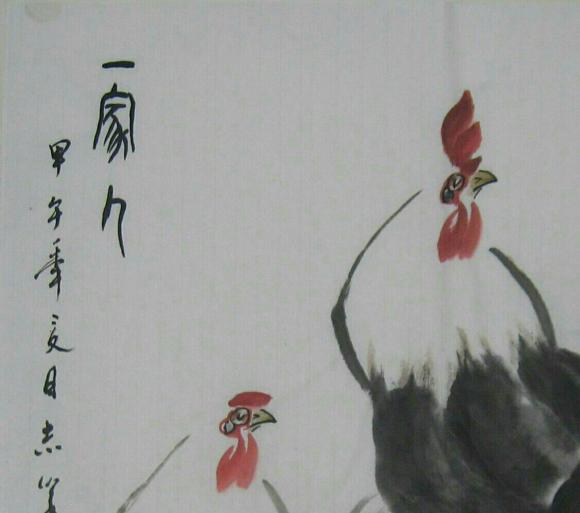 一家人
甲午年夏日志